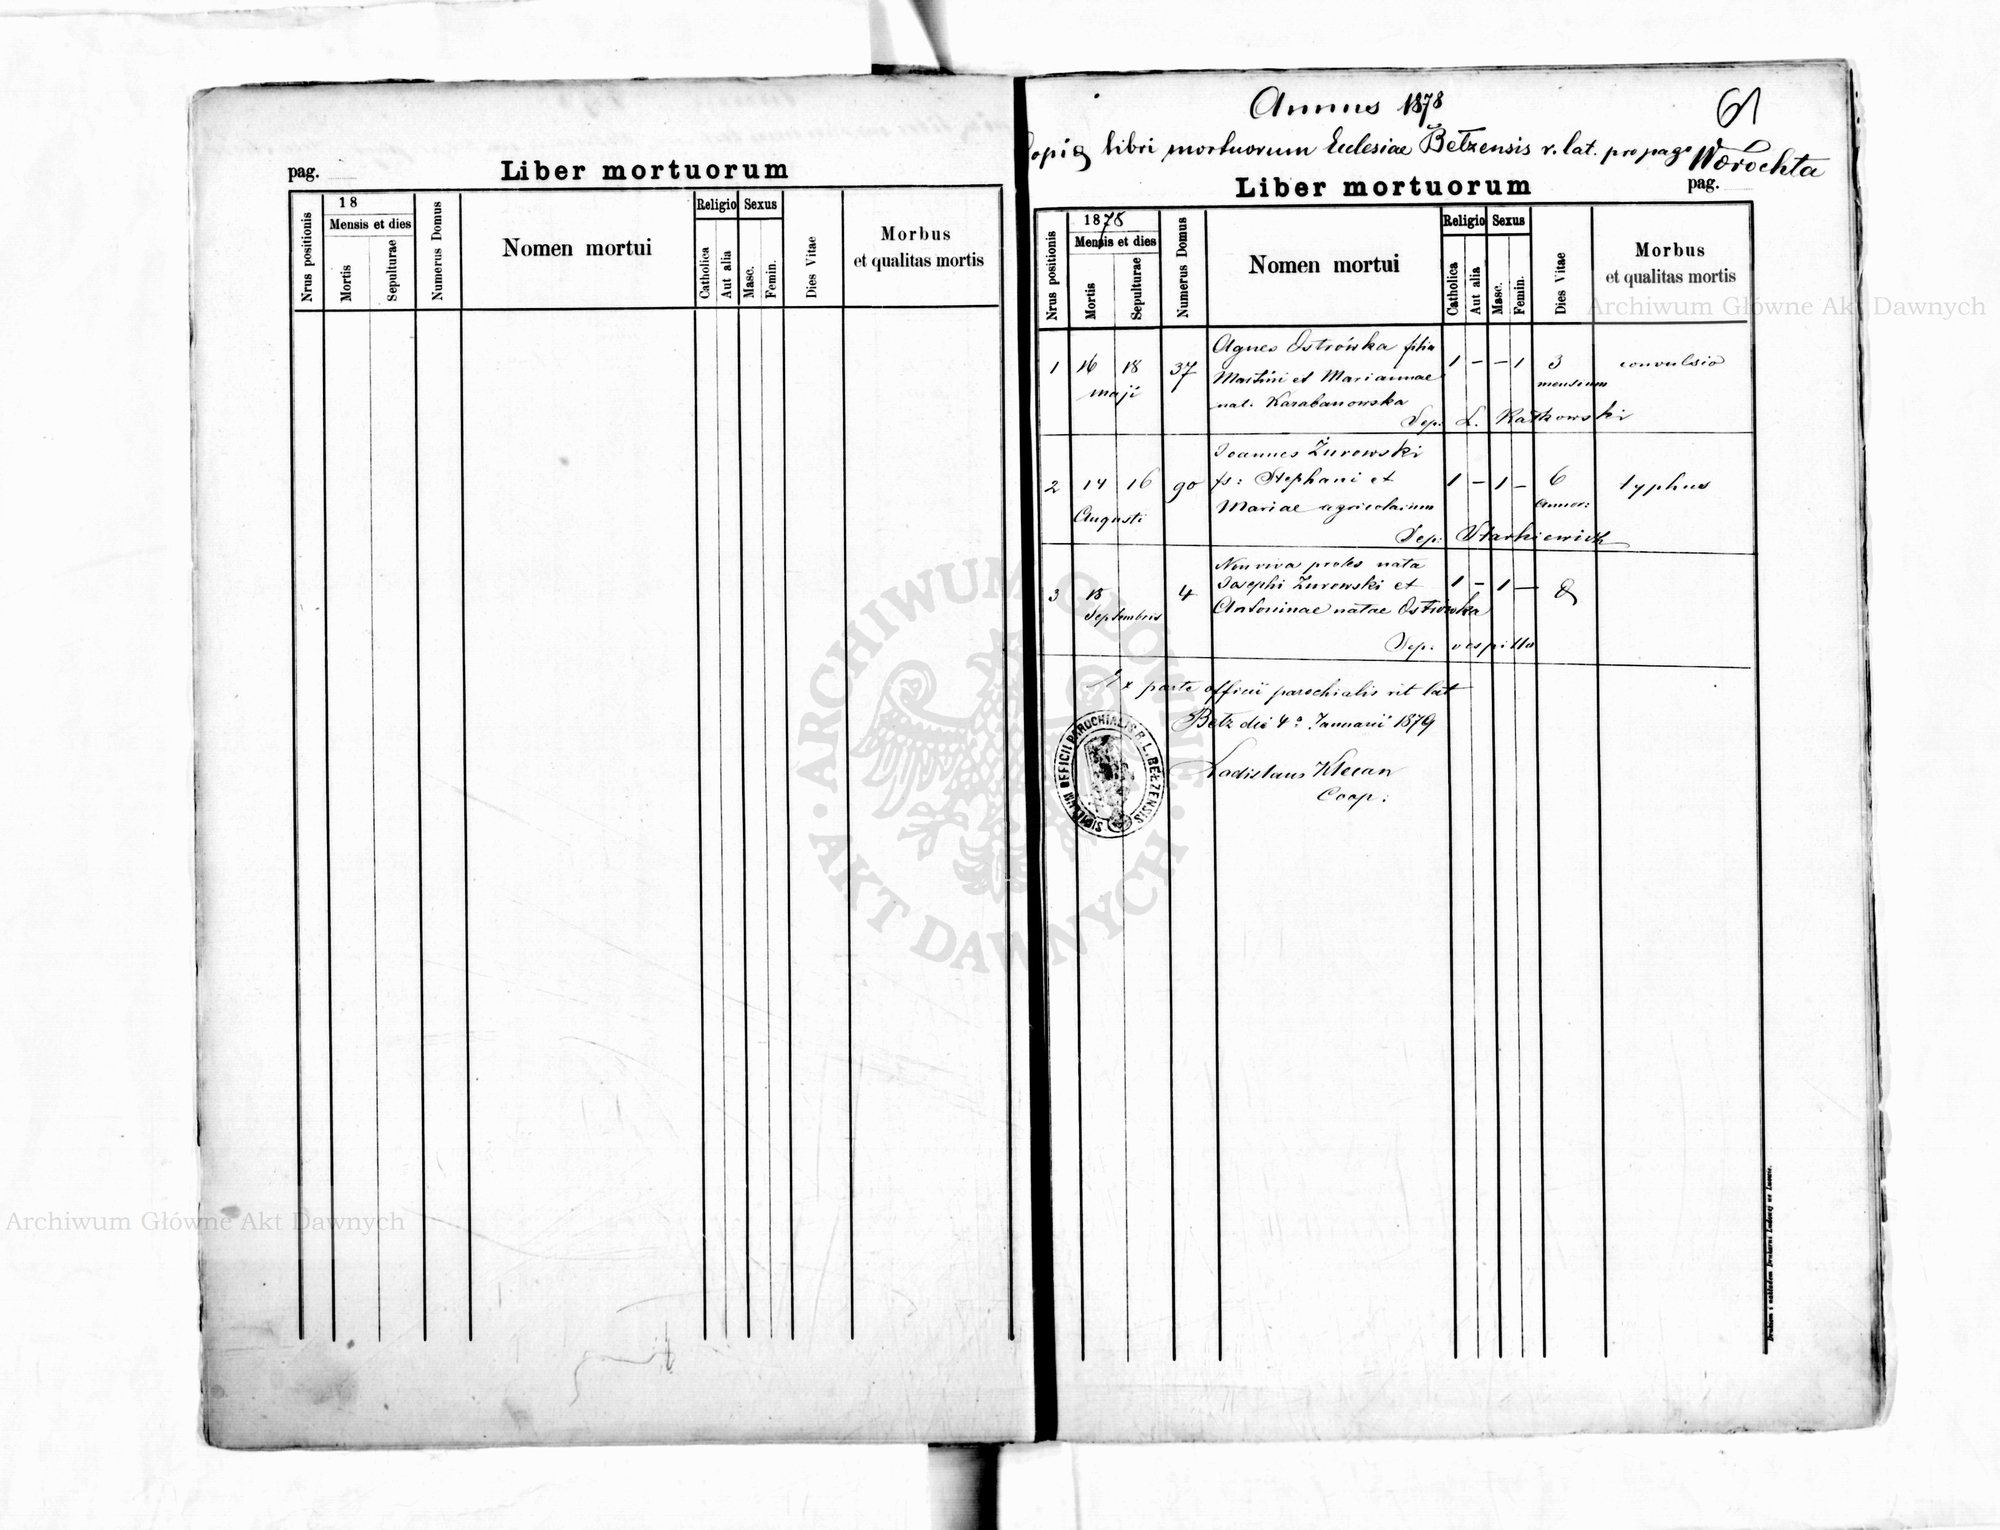 pag.
Liber mortuorum
Nrus positionis
18
Mensis et dies
Mortis
Sepulturae
Numerus Domus
Nomen mortui
Religio
Catholica
Aut alia
Sexus
Masc.
Femin.
Dies Vitae
Morbus
et qualitas mortis
Annus 1878
61
Copia libri mortuorum Ecclesiae Bełzensis r. lat. pro pago Worochta
Liber mortuorum
pag.
Nrus positionis
1878
Mensis et dies
Mortis
Sepulturae
Numerus Domus
Nomen mortui
Religio
Catholica
Aut alia
Sexus
Masc.
Femin.
Dies Vitae
Morbus
et qualitas mortis
Agnes Ostrówska filia
1 16 18 37 Martini et Mariannae 1 – – 1 3 convulsio
maji nat. Karabanowska mensium
Sep. L. Ratkowski
Joannes Żurowski
2 14 16 90 fs: Stephani et 1 – 1 – 6 typhus
Augusti Mariae agricolarum annor:
Sep: Starkiewicz
Non viva proles nata
3 18 4 Josephi Żurowski et 1 – 1 –
Septembris Antoninae natae Ostrówska
Sep. vespillo
Ex parte officii parochialis rit lat
Bełz die 4° Januarii 1879
Ladislaus Klecan
Coop:
SIGILLUM OFFICII PAROCHIALIS R. L. BEŁZENSIS
Drukiem i nakładem Drukarni Ludowej we Lwowie.
ARCHIWUM GŁÓWNE AKT DAWNYCH
Archiwum Główne Akt Dawnych
Archiwum Główne Akt Dawnych